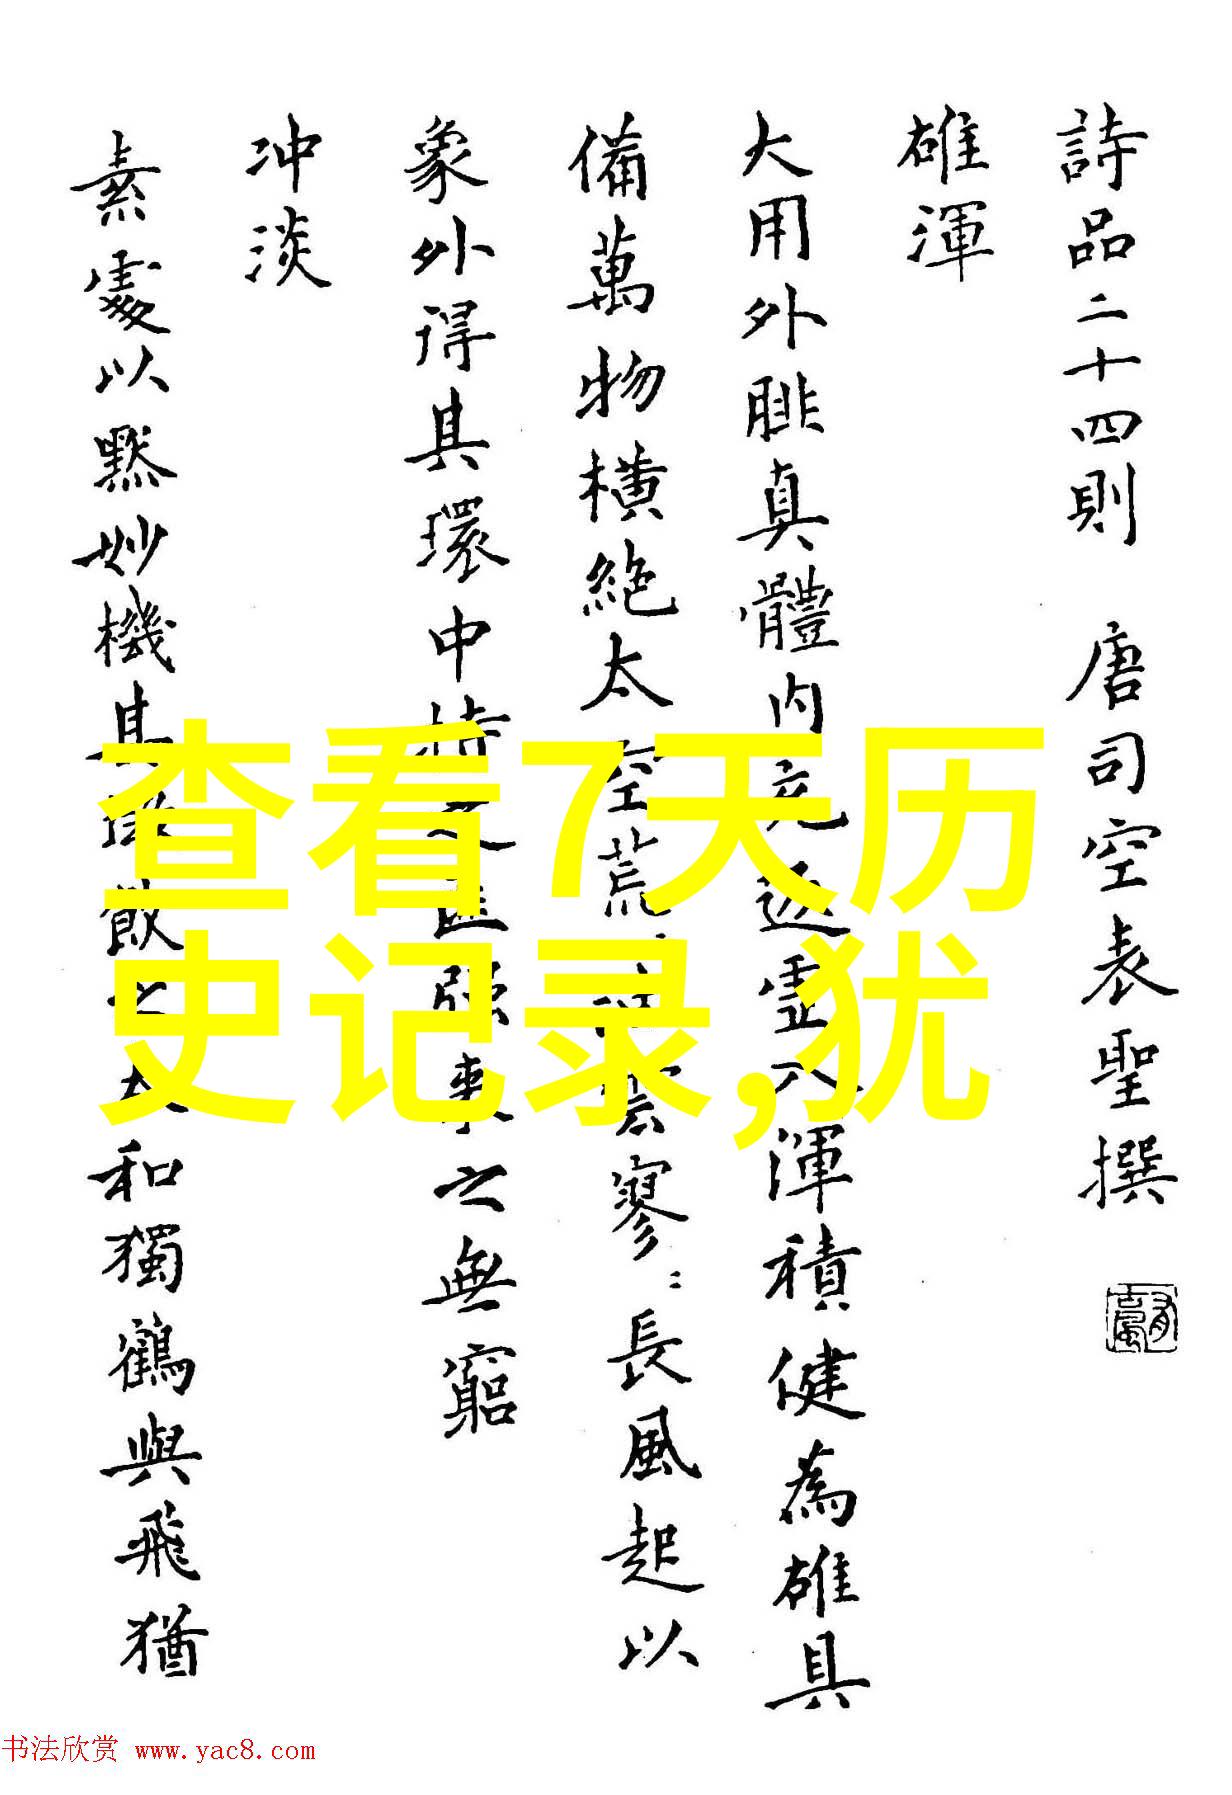 詩品二十四則 唐司空表聖撰
雄渾
大用外腓真體内充返虛入渾積健為雄具
備萬物橫絕太空荒〻雲寥〻長風起以
象外得其環中持之匪强来之無窮
冲淡
素處以默妙機其微飲之太和獨鶴與飛猶
查看7天历
史记录,犹
书法欣赏 www.yac8.com